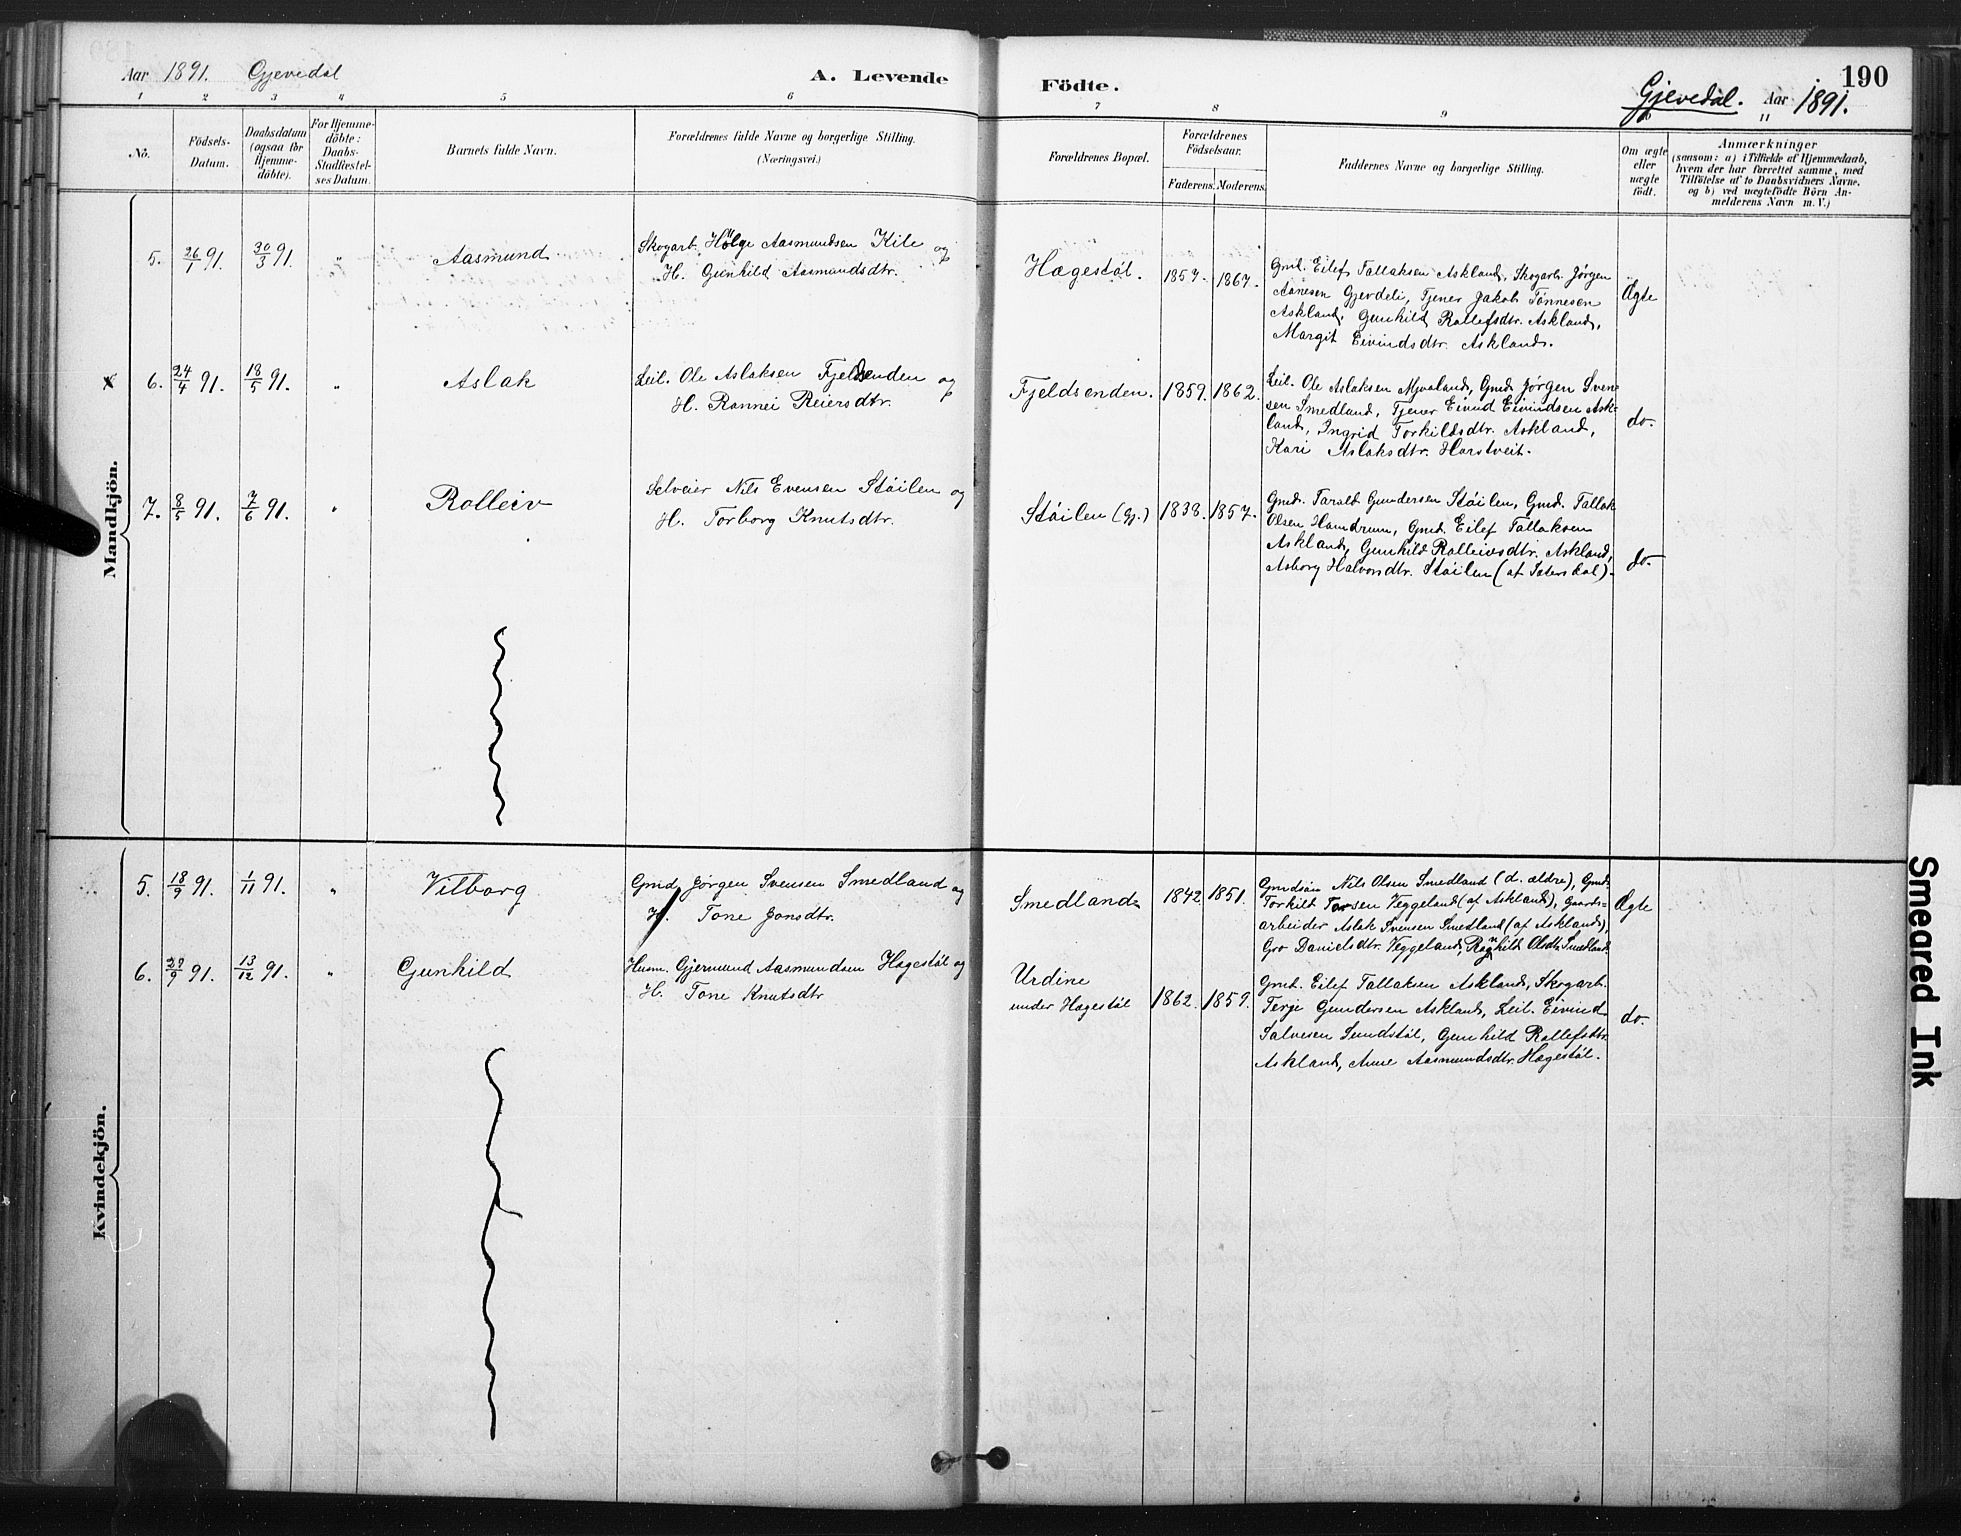 Aar 1891. Gjevedal
A. Levende
Födte.
190
Gjevedal. Aar 1891.
1 2 3 4 5 6 7 8 9 11
No.
Födsels-
Datum.
Daabsdatum
(ogsaa for
Hjemme-
döbte).
For Hjemme-
döbte:
Daabs-
Stadfæstel-
ses Datum.
Barnets fulde Navn.
Forældrenes fulde Navne og borgerlige Stilling.
(Næringsvei.)
Forældrenes Bopæl.
Forældrenes
Födselsaar.
Faderens. Moderens.
Faddernes Navne og borgerlige Stilling.
Om ægte
eller
uægte
födt.
Anmærkninger
(saasom: a) i Tilfælde af Hjemmedaab,
hvem der har forrettet samme, med
Tilföielse af to Daabsvidners Navne,
og b) ved uægtefödte Börn An-
melderens Navn m. V.)
Mandkjön.
5. 26/1 91. 30/3 91. " Aasmund
Skogarb. Helge Aasmundsen Kile og
H. Gunhild Aasmundsdtr.
Hægestøl. 1857. 1867.
Gmd. Eilef Tallaksen Askland, Skogarb. Jørgen
Aanesen Gjevdeli, Tjener Jakob Tønnesen
Askland, Gunhild Rollefsdtr. Askland,
Margit Eivindsdtr. Askland.
Ægte
x 6. 24/4 91. 18/5 91. " Aslak
Leil. Ole Aslaksen Fjeldsenden og
H. Rannei Reiersdtr.
Fjeldsenden. 1859. 1862.
Leil. Ole Aslaksen Mjvaland, Gmd. Jørgen Sven-
sen Smedland, Tjener Eivind Eivindsen Ask-
land, Ingrid Torkildsdtr. Askland,
Kari Aslaksdtr. Harstveit.
do.
7. 8/5 91. 7/6 91. " Rolleiv
Selveier Nils Evensen Støilen og
H. Torborg Knutsdtr.
Støilen (Gj.) 1838. 1857.
Gmd. Tarald Gundersen Støilen, Gmd. Tallak
Olsen Hamdrum, Gmd. Eilef Tallaksen
Askland, Gunhild Rolleivsdtr. Askland,
Asborg Halvorsdtr. Støilen (af Sætersdal).
do.
Kvindekjön.
5. 18/9 91. 1/11 91. " Vilborg
Gmd. Jørgen Svensen Smedland og
H. Tone Jonsdtr.
Smedland 1842 1851.
Gmdsøn Nils Olsen Smedland (d. ældre), Gmd.
Torkild Torsen Veggeland (af Askland), Gaards-
arbeider Aslak Svensen Smedland (af Askland),
Gro Danielsdtr. Veggeland, Ragnhild Olsdtr. Smedland.
Ægte
6. 29/9 91. 13/12 91. " Gunhild
Husm. Gjermund Aasmundsen Hægestøl og
H. Tone Knutsdtr
Urdine
under Hægestøl 1862. 1859.
Gmd. Eilef Tallaksen Askland, Skogarb.
Terje Gundersen Askland, Leil. Eivind
Salvesen Sundstøl, Gunhild Rollefsdtr.
Askland, Anne Aasmundsdtr. Hægestøl.
do.
Smeared Ink